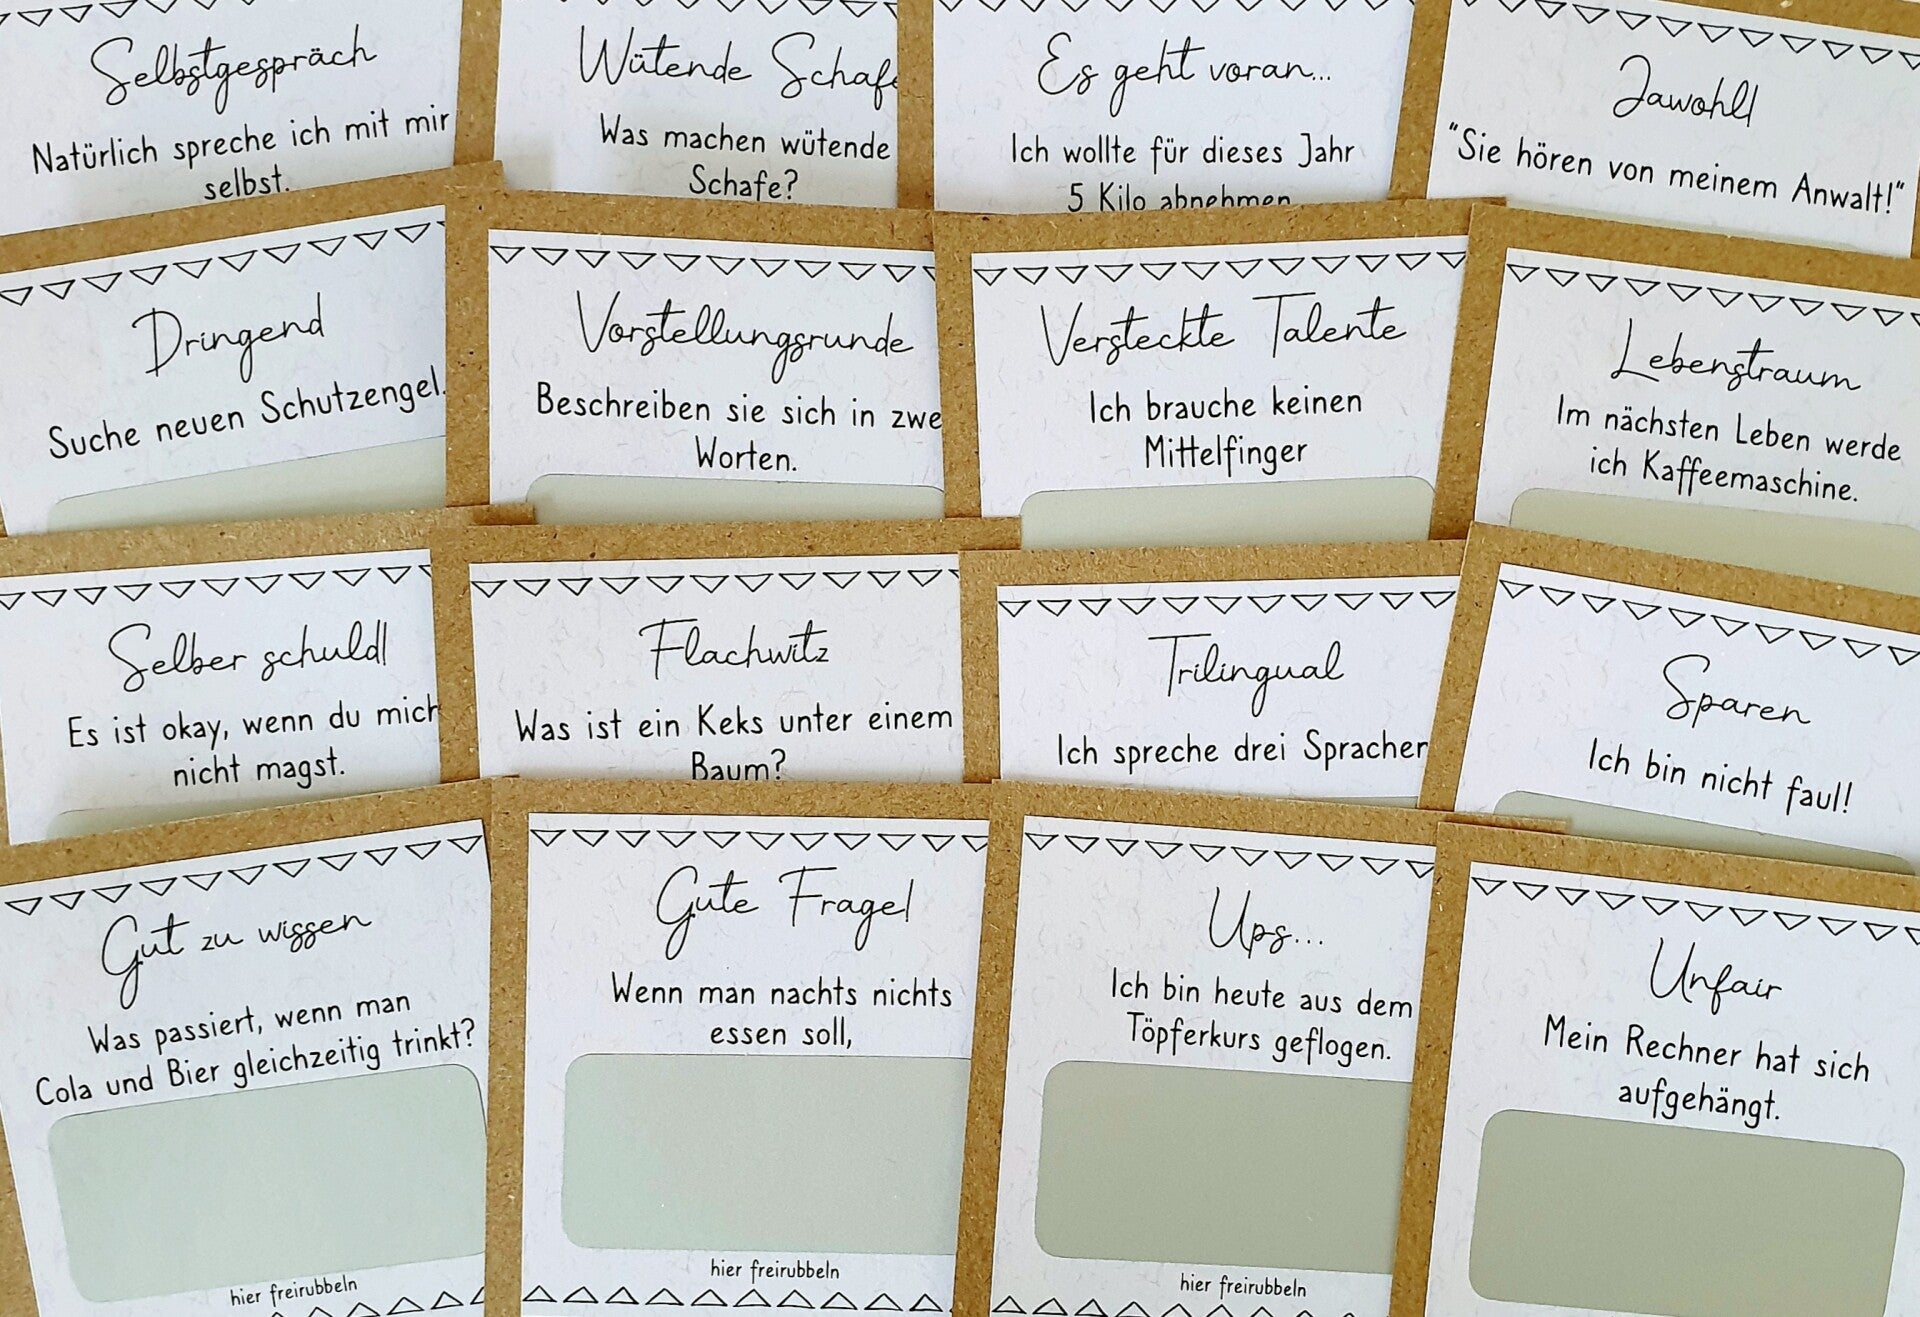 Selbstgespräch
Natürlich spreche ich mit mir
selbst.
Wütende Schafe
Was machen wütende
Schafe?
Es geht voran...
Ich wollte für dieses Jahr
5 Kilo abnehmen
Jawohl!
"Sie hören von meinem Anwalt!"
Dringend
Suche neuen Schutzengel.
Vorstellungsrunde
Beschreiben sie sich in zwe
Worten.
Versteckte Talente
Ich brauche keinen
Mittelfinger
Lebenstraum
Im nächsten Leben werde
ich Kaffeemaschine.
Selber schuld!
Es ist okay, wenn du mich
nicht magst.
Flachwitz
Was ist ein Keks unter einem
Baum?
Trilingual
Ich spreche drei Sprachen
Sparen
Ich bin nicht faul!
Gut zu wissen
Was passiert, wenn man
Cola und Bier gleichzeitig trinkt?
hier freirubbeln
Gute Frage!
Wenn man nachts nichts
essen soll,
hier freirubbeln
Ups...
Ich bin heute aus dem
Töpferkurs geflogen.
hier freirubbeln
Unfair
Mein Rechner hat sich
aufgehängt.